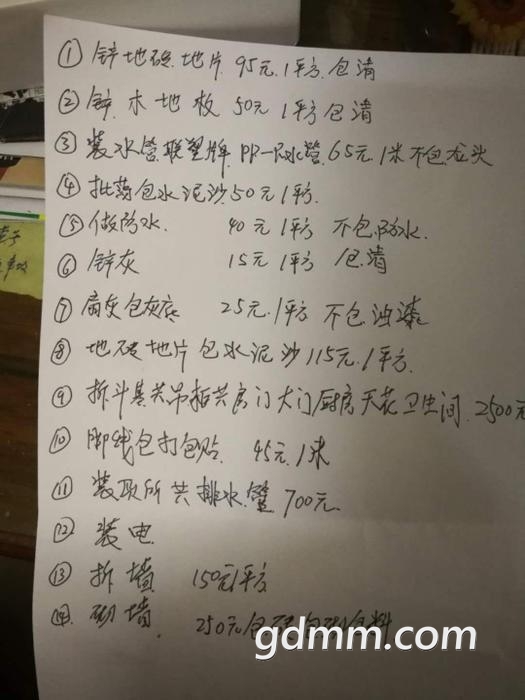 ① 锌地砖地片 95元/1平方包清
② 锌木地板 50元1平方包清
③ 装水管联塑牌PP-R水管65元1米不包龙头
④ 批荡包水泥沙50元1平方
⑤ 做防水 40元1平方 不包防水
⑥ 锌灰 15元1平方 包清
⑦ 扇灰包灰底 25元1平方 不包油漆
⑧ 地砖地片包水泥沙115元1平方
⑨ 拆斗其共吊柜共房门大门厨房天花卫生间 2500元
⑩ 脚线包打包贴 45元1米
⑪ 装厕所共排水管700元
⑫ 装电
⑬ 拆墙 150元1平方
⑭ 砌墙 250元包
gdmm.com